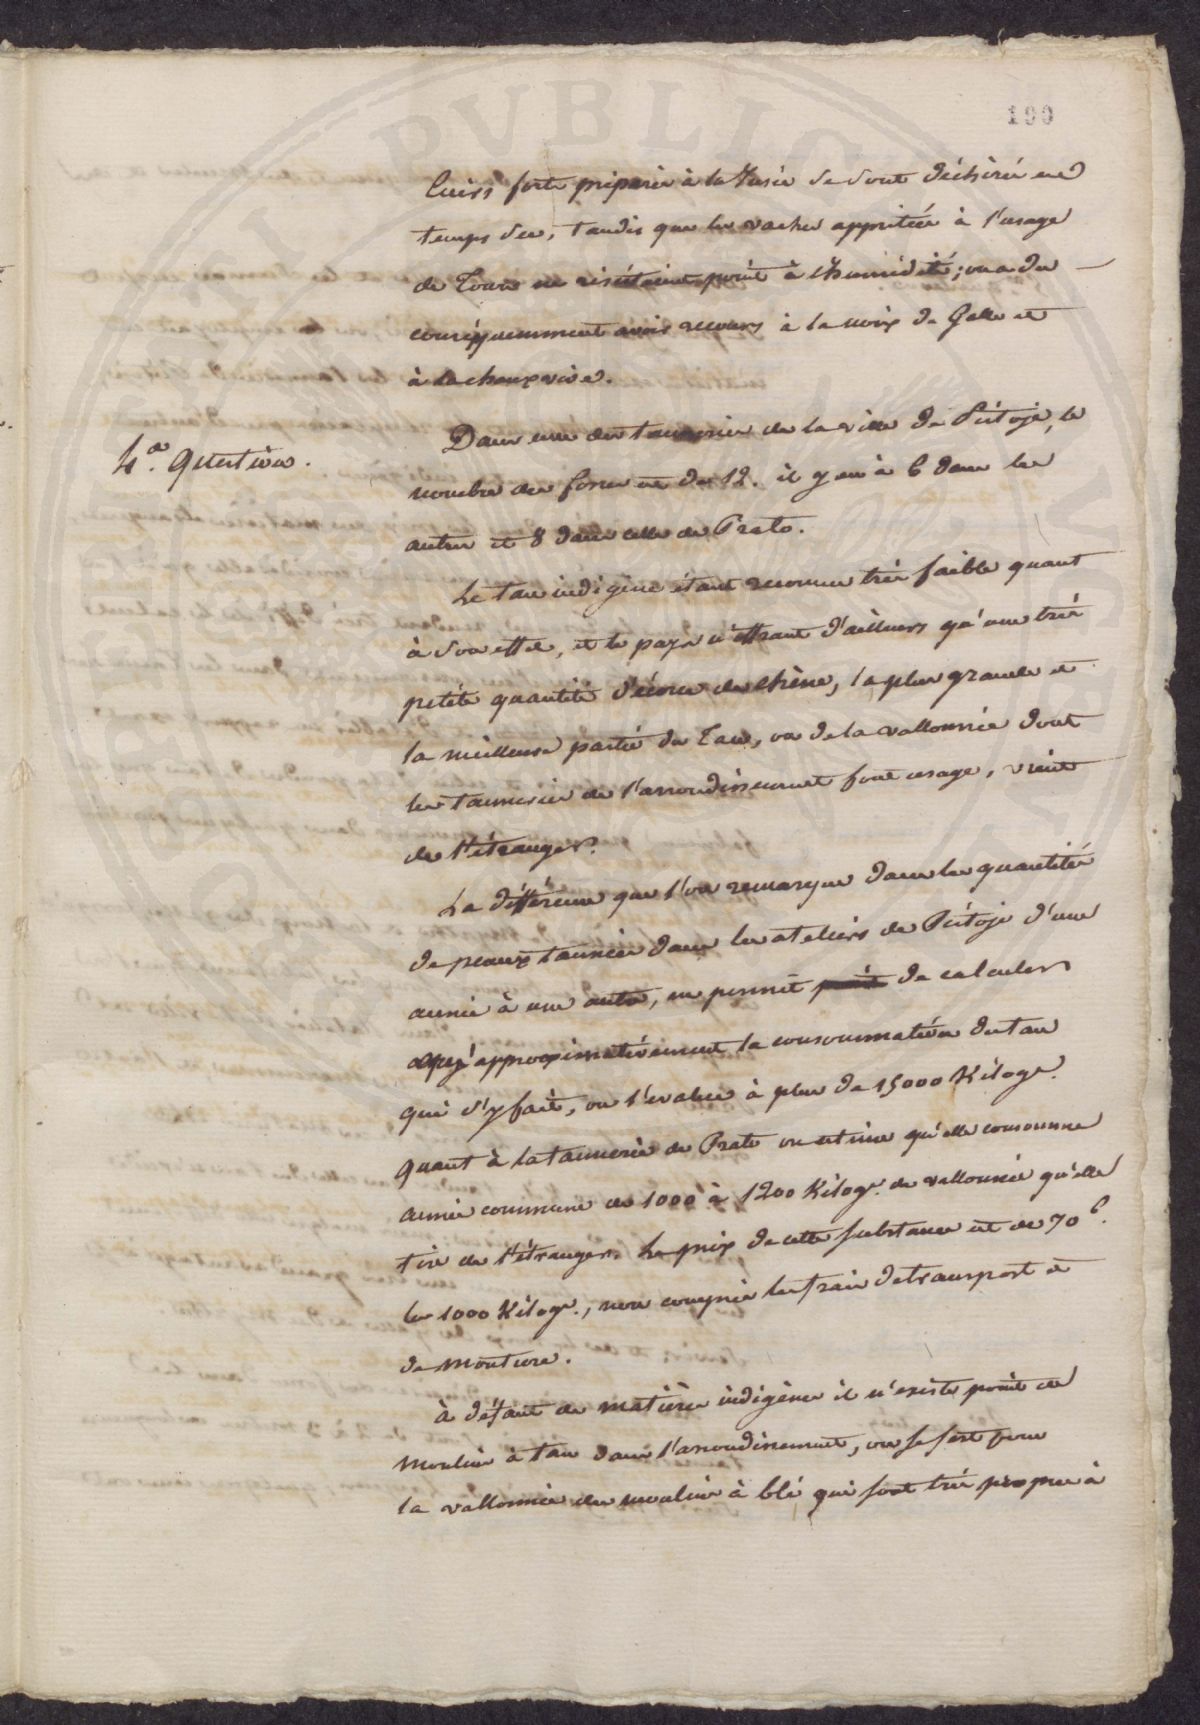 190
Cuirs forts préparés à la Jusée se sont déchirés en
temps sec, tandis que les vaches apprêtées à l'usage
de Tours ne résistaient point à l'humidité; on a du
conséquemment avoir recours à la noix de Galle et
à la chaux vive.
4e. Question.
Dans une des tanneries de la ville de Pistoje, le
nombre des fosses est de 12. il y en à 6 dans les
autres et 8 dans celle de Prato.
Le tan indigène étant reconnu très faible quant
à son effet, et le pays n'offrant d'ailleurs qu'une très
petite quantité d'écorce de chêne, la plus grande et
la meilleure partie du Tan, ou de la vallonnée dont
les tanneries de l'arrondissement font usage, vient
de l'étranger.
La différence que l'on remarque dans les quantités
de peaux tannées dans les ateliers de Pistoje d'une
année à une autre, ne permet point de calculer
qu'approximativement la consommation du tan
qui s'y fait, on l'évalue à plus de 15000 Kilogs.
Quant à la tannerie de Prato on estime qu'elle consomme
année commune de 1000 à 1200 Kilogs. de vallonnée qu'elle
tire de l'étranger. Le prix de cette substance est de 70 f.
les 1000 Kilogs., non compris les frais de transport et
de mouture.
à défaut de matières indigènes il n'existe point de
moulins à tan dans l'arrondissement, on se sert pour
la vallonnée des moulins à blé qui sont très propres à